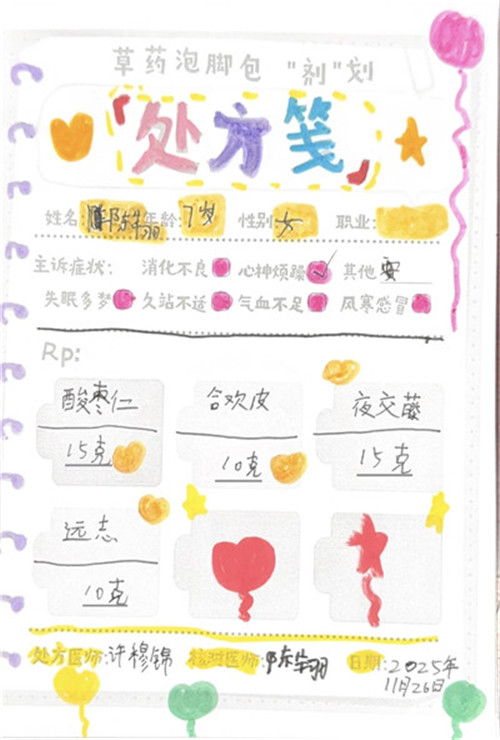 草药泡脚包 "剂"划
处方笺
姓名: 陈翔 年龄: 7岁 性别: 女 职业:
主诉症状: 消化不良 心神烦躁✓ 其他 安
失眠多梦 久站不适 气血不足 风寒感冒
Rp:
酸枣仁 合欢皮 夜交藤
15克 10克 15克
远志
10克
处方医师: 许穆锦 核对医师: 陈翔 日期: 2025年
11月26日